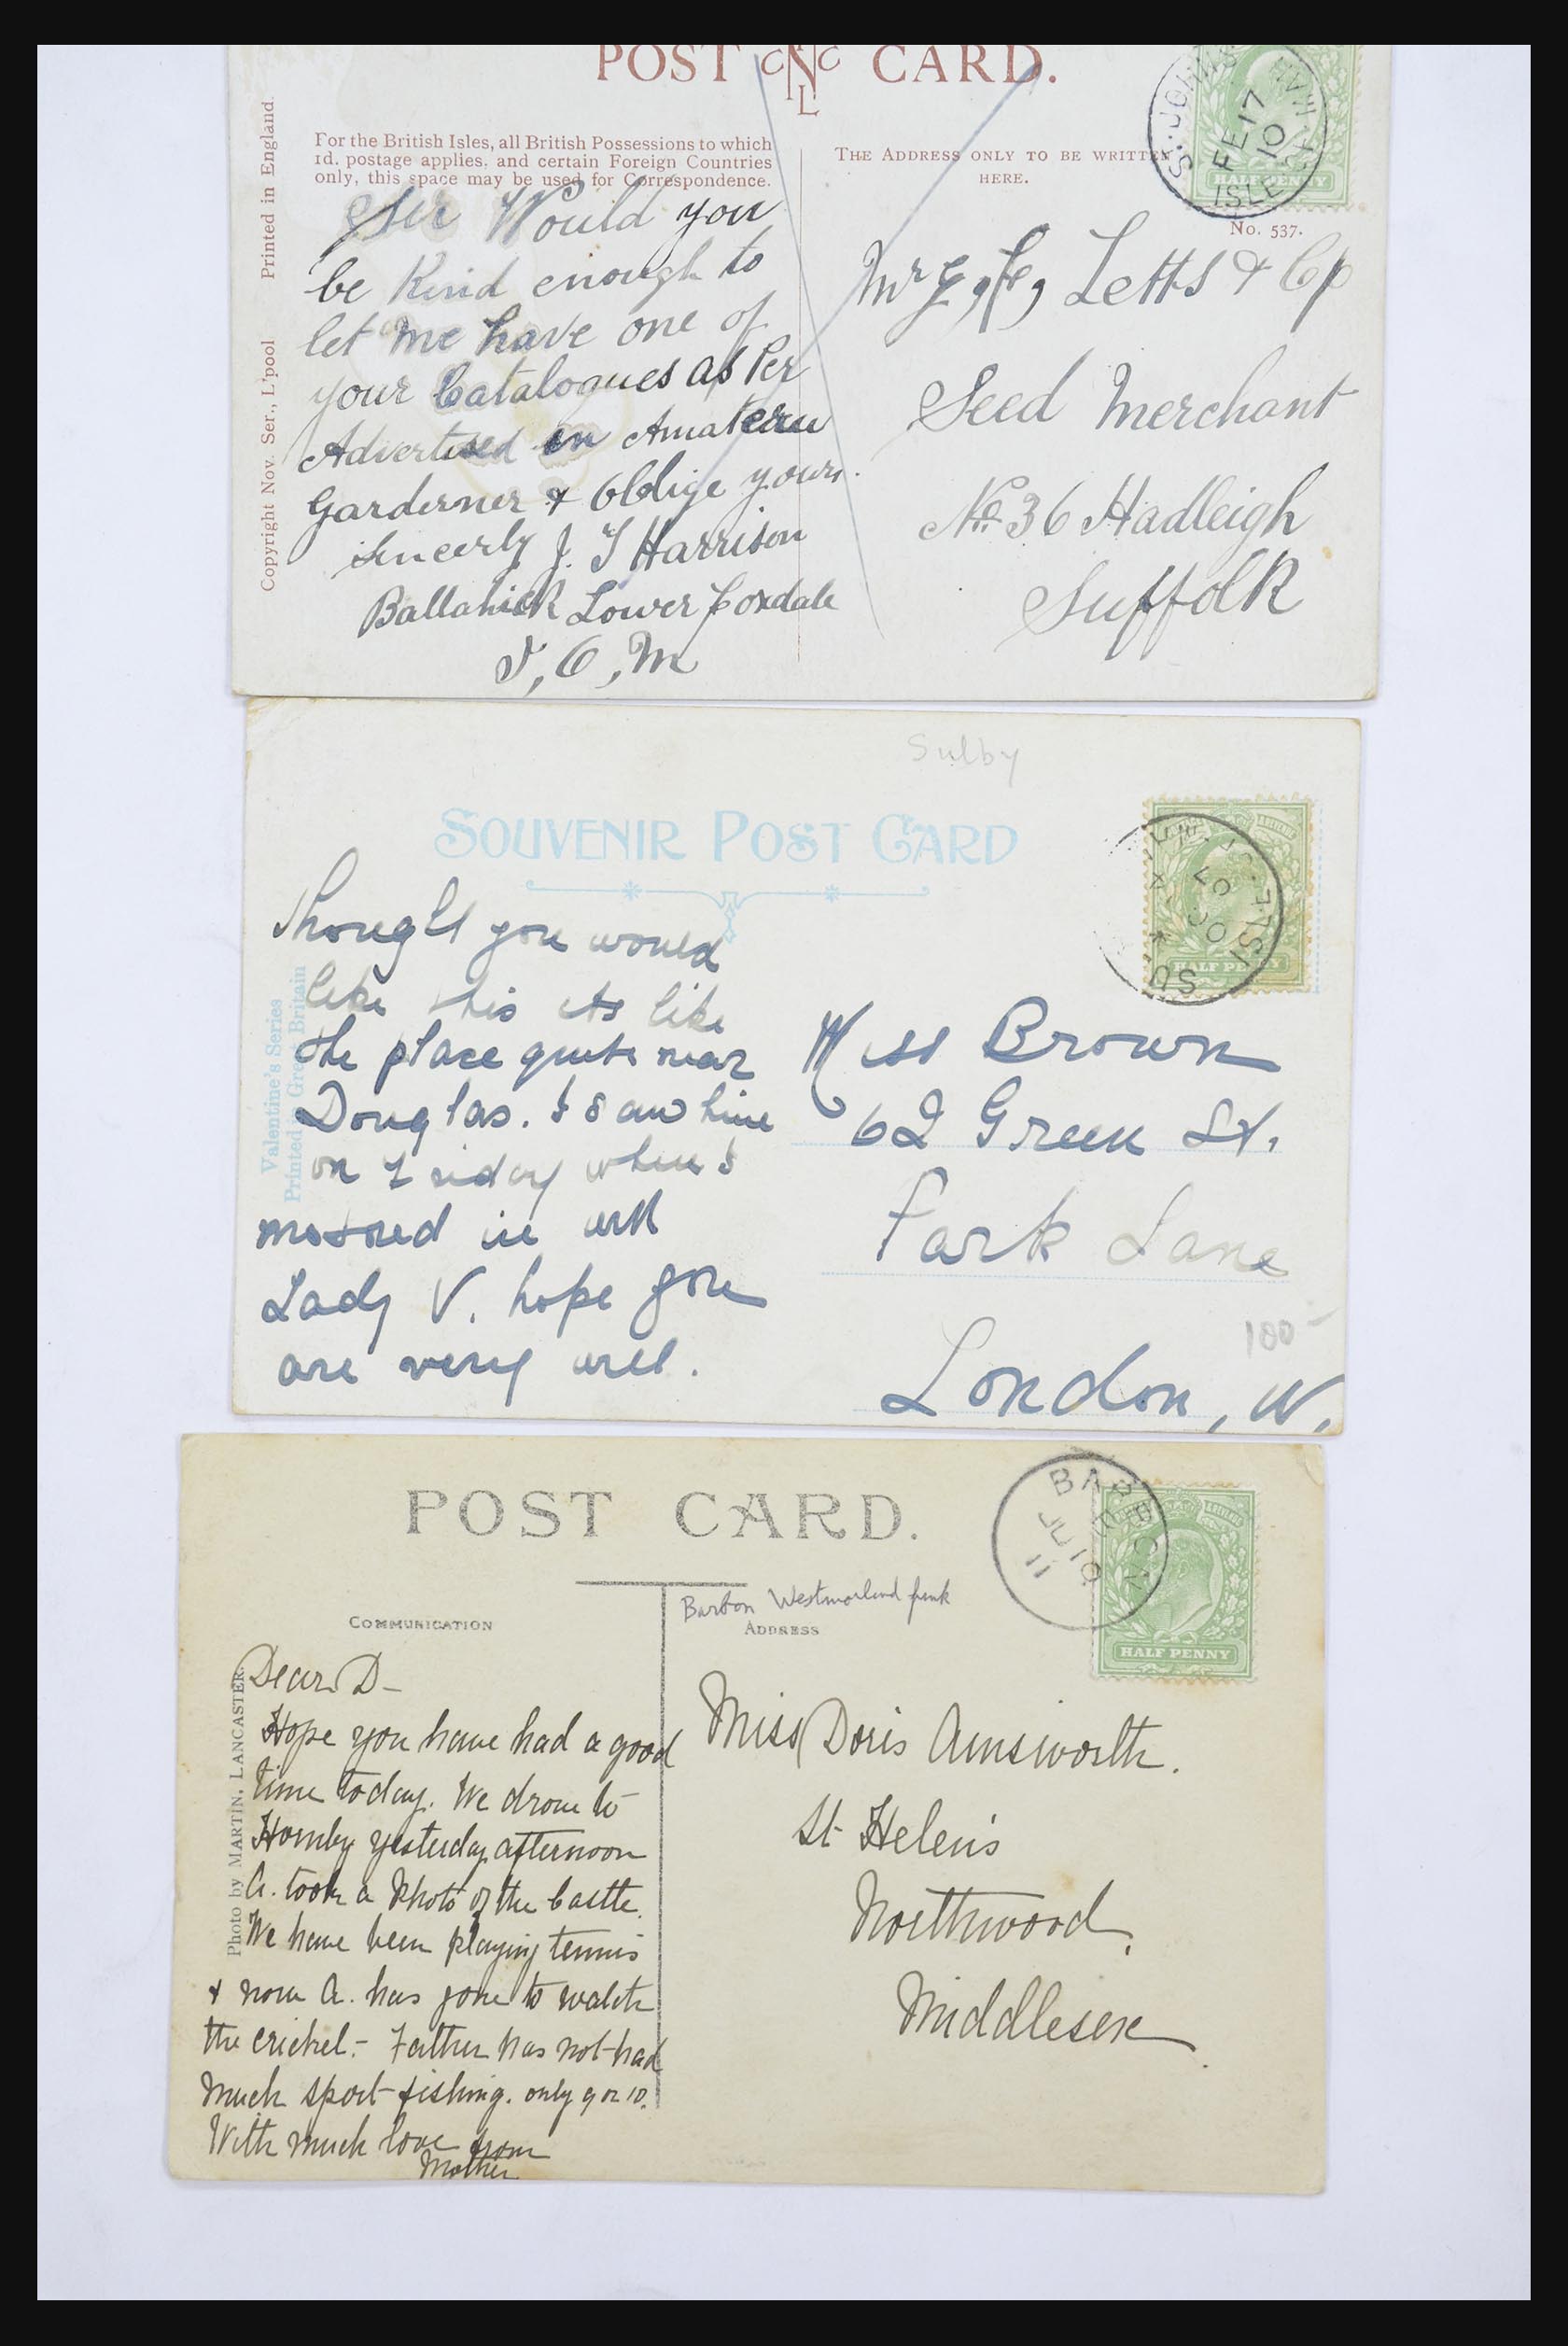 POST CNC L CARD.
Printed in England.
Copyright Nov. Ser., L'pool
For the British Isles, all British Possessions to which
1d. postage applies, and certain Foreign Countries
only, this space may be used for Correspondence.
THE ADDRESS ONLY TO BE WRITTEN
HERE.
FE 17
10
HALF PENNY
No. 537.
Sir Would you
be Kind enough to
let me have one of
your Catalogues as Per
Advertised in Amateur
Garderner & Oblige yours.
Sincerly J. T Harrison
Lower Foxdale
I, O, M
Letts & Co
Seed Merchant
No 36 Hadleigh
Suffolk
Sulby
SOUVENIR POST CARD
Valentine's Series
Printed in Great Britain
HALF PENNY
SU ISLE
Thought you would
like this its like
the place quite near
Douglas. I saw him
on Friday when I
motored in with
Lady V. hope you
are very well.
Miss Brown
62 Green St.
Park Lane
100-
London, W.
POST CARD.
BARBON
JU 10
11
HALF PENNY
Barbon Westmorland
COMMUNICATION
ADDRESS
Photo by MARTIN, LANCASTER.
Dear D-
Hope you have had a good
time today. We drove to
Hornby yesterday afternoon
A. took a Photo of the Castle.
We have been playing tennis
& now A. has gone to watch
the cricket.- Father has not had
much sport fishing. only 9 or 10.
With much love from
Mother
Miss Doris Ainsworth.
St Helens
Northwood,
Middlesex